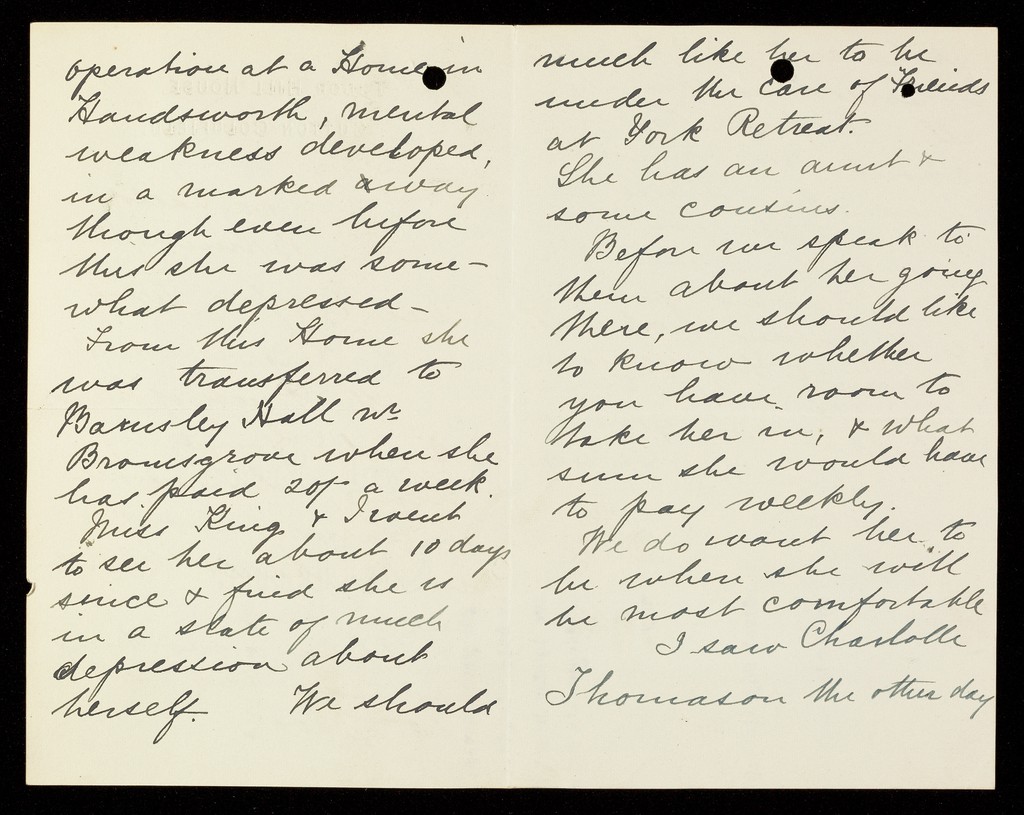 operation at a Home in
Handsworth, mental
weakness developed,
in a marked away
though even before
this she was some-
what depressed -
From this Home she
was transferred to
Barnsley Hall nr
Bromsgrove when she
has paid 20/- a week.
Miss King & I went
to see her about 10 days
since & find she is
in a state of much
depression about
herself. We should
much like her to be
under the care of Friends
at York Retreat.
She has an aunt &
some cousins.
Before we speak to
them about her going
there, we should like
to know whether
you have room to
take her in, & what
sum she would have
to pay weekly.
We do want her to
be where she will
be most comfortable
I saw Charlotte
Thomason the other day